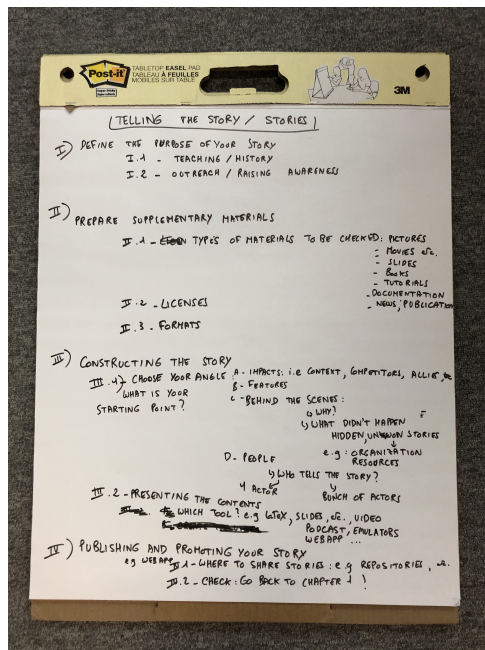 Post-it
TABLETOP EASEL PAD
TABLEAU À FEUILLES
MOBILES SUR TABLE
3M
TELLING THE STORY / STORIES
I) DEFINE THE PURPOSE OF YOUR STORY
I.1 - TEACHING / HISTORY
I.2 - OUTREACH / RAISING AWARENESS
II) PREPARE SUPPLEMENTARY MATERIALS
II.1 - TYPES OF MATERIALS TO BE CHECKED: PICTURES
- MOVIES etc.
- SLIDES
- BOOKS
- TUTORIALS
- DOCUMENTATION
- NEWS, PUBLICATION
II.2 - LICENSES
II.3 - FORMATS
III) CONSTRUCTING THE STORY
III.1) CHOOSE YOUR ANGLE: A - IMPACTS: i.e CONTEXT, COMPETITORS, ALLIES, etc
WHAT IS YOUR B - FEATURES
STARTING POINT? C - BEHIND THE SCENES:
WHY?
WHAT DIDN'T HAPPEN
HIDDEN, UNKNOWN STORIES
e.g: ORGANIZATION
RESOURCES
D - PEOPLE
WHO TELLS THE STORY?
1 ACTOR BUNCH OF ACTORS
III.2 - PRESENTING THE CONTENTS
WHICH TOOL? e.g LaTeX, SLIDES, etc., VIDEO
PODCAST, EMULATORS
WEBAPP ...
IV) PUBLISHING AND PROMOTING YOUR STORY
eg WEBAPP
IV.1 - WHERE TO SHARE STORIES: e.g REPOSITORIES, etc.
IV.2 - CHECK: GO BACK TO CHAPTER 1!